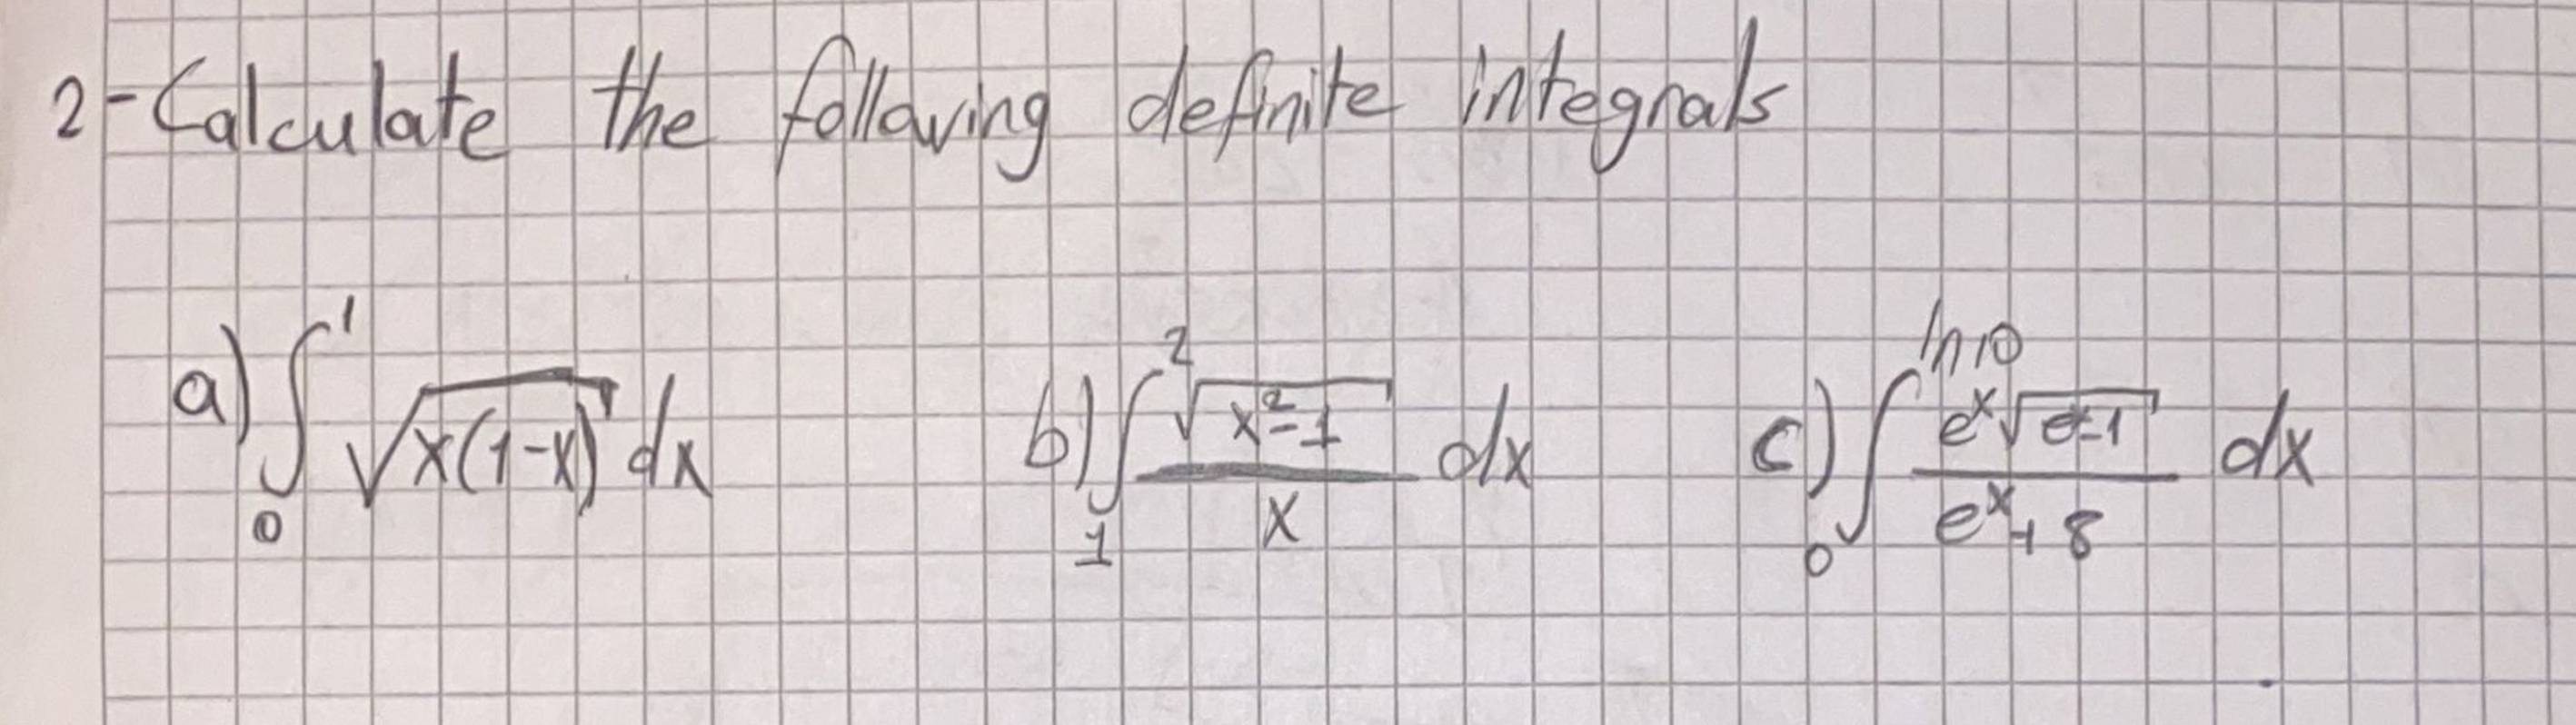 2-Calculate the following definite integrals
a) ∫₀¹ √(x(1-x)) dx b) ∫₁² √(x²-1)/x dx c) ∫₀^(ln10) e^x√(e^x-1)/(e^x+8) dx